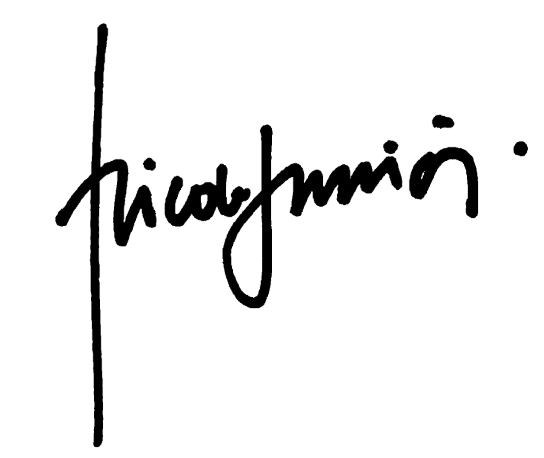 Nicola Junior.